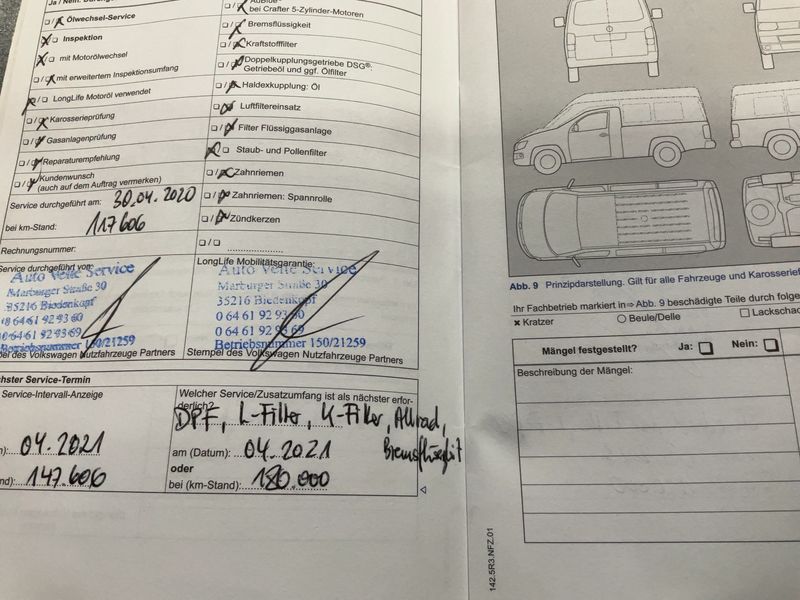 Ja / Nein:
Ölwechsel-Service
Inspektion
mit Motorölwechsel
mit erweitertem Inspektionsumfang
LongLife Motoröl verwendet
Karosserieprüfung
Gasanlagenprüfung
Reparaturempfehlung
Kundenwunsch
(auch auf dem Auftrag vermerken)
Service durchgeführt am: 30.04.2020
bei km-Stand: 117606
Rechnungsnummer:
Service durchgeführt von:
Auto Velte Service
Marburger Straße 30
35216 Biedenkopf
0 64 61 92 93 60
0 64 61 92 93 69
Betriebsnummer 150/21259
pel des Volkswagen Nutzfahrzeuge Partners
bei Crafter 5-Zylinder-Motoren
Bremsflüssigkeit
Kraftstofffilter
Doppelkupplungsgetriebe DSG®:
Getriebeöl und ggf. Ölfilter
Haldexkupplung: Öl
Luftfiltereinsatz
Filter Flüssiggasanlage
Staub- und Pollenfilter
Zahnriemen
Zahnriemen: Spannrolle
Zündkerzen
LongLife Mobilitätsgarantie:
Auto Velte Service
Marburger Straße 30
35216 Biedenkopf
0 64 61 92 93 60
0 64 61 92 93 69
Betriebsnummer 150/21259
Stempel des Volkswagen Nutzfahrzeuge Partners
chster Service-Termin
Service-Intervall-Anzeige
04.2021
147.606
Welcher Service/Zusatzumfang ist als nächster erfor-
derlich?
DPF, L-Filter, K-Filter, Allrad,
Bremsflüssigkeit
am (Datum): 04.2021
oder
bei (km-Stand): 180.000
Abb. 9 Prinzipdarstellung. Gilt für alle Fahrzeuge und Karosserief
Ihr Fachbetrieb markiert in ⇒ Abb. 9 beschädigte Teile durch folge
× Kratzer ○ Beule/Delle □ Lackscha
Mängel festgestellt? Ja: Nein:
Beschreibung der Mängel:
142.5R3.NFZ.01